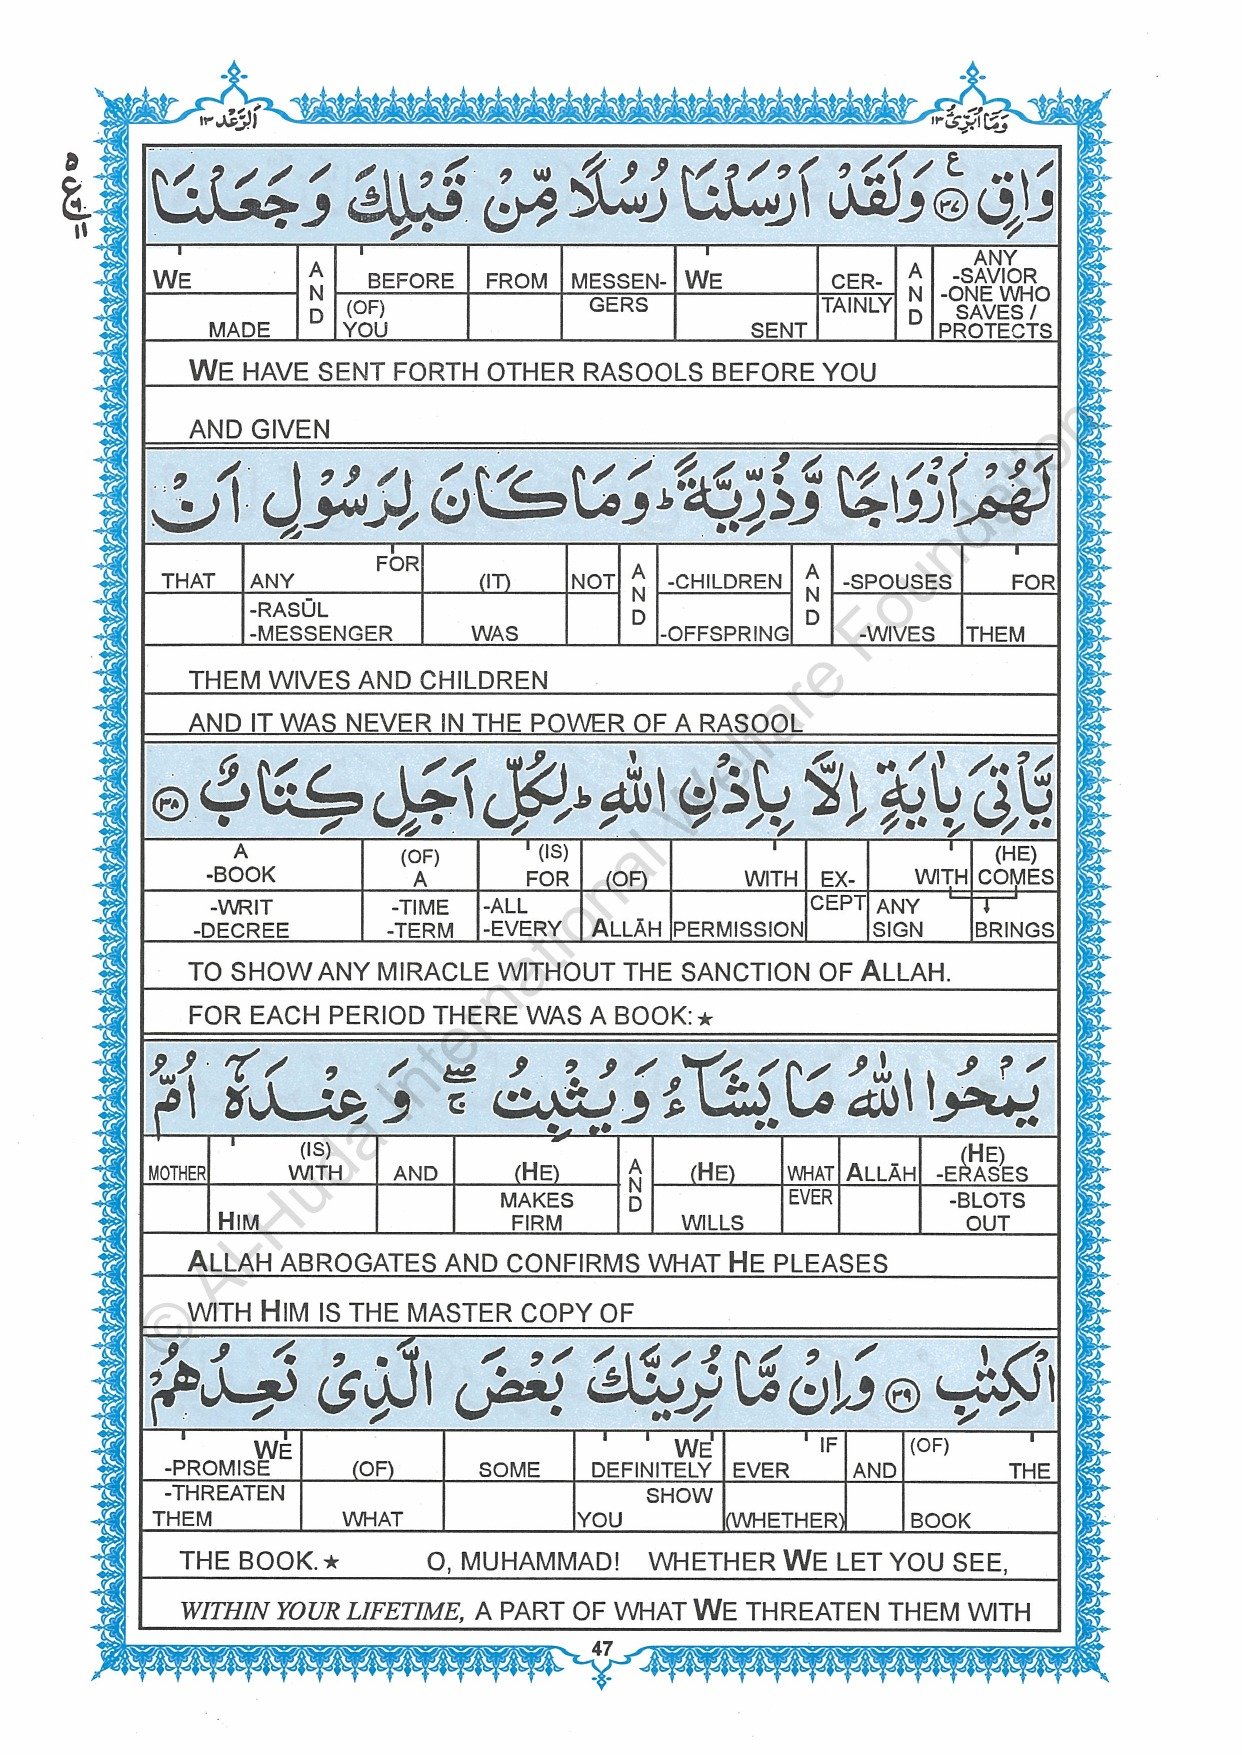 اَلرَّعْد ١٣
وَمَآ اُبَرِّئُ ١٣
وَاقٍ ﴿٣٧﴾ وَلَقَدْ اَرْسَلْنَا رُسُلًا مِّنْ قَبْلِكَ وَجَعَلْنَا
WE MADE | AND | BEFORE (OF) YOU | FROM | MESSENGERS | WE SENT | CERTAINLY | AND | ANY -SAVIOR -ONE WHO SAVES / PROTECTS
WE HAVE SENT FORTH OTHER RASOOLS BEFORE YOU
AND GIVEN
لَهُمْ اَزْوَاجًا وَّذُرِّيَّةً ؕ وَمَا كَانَ لِرَسُوْلٍ اَنْ
THAT | FOR ANY -RASŪL -MESSENGER | (IT) WAS | NOT | AND | -CHILDREN -OFFSPRING | AND | -SPOUSES -WIVES | FOR THEM
THEM WIVES AND CHILDREN
AND IT WAS NEVER IN THE POWER OF A RASOOL
يَّاْتِيَ بِاٰيَةٍ اِلَّا بِاِذْنِ اللّٰهِ ؕ لِكُلِّ اَجَلٍ كِتَابٌ ﴿٣٨﴾
A -BOOK -WRIT -DECREE | (OF) A -TIME -TERM | (IS) FOR -ALL -EVERY | (OF) ALLĀH | WITH PERMISSION | EXCEPT | WITH ANY SIGN | (HE) COMES BRINGS
TO SHOW ANY MIRACLE WITHOUT THE SANCTION OF ALLAH.
FOR EACH PERIOD THERE WAS A BOOK:★
يَمْحُوا اللّٰهُ مَا يَشَآءُ وَيُثْبِتُ ۖۚ وَعِنْدَهٗٓ اُمُّ
MOTHER | (IS) WITH HIM | AND | (HE) MAKES FIRM | AND | (HE) WILLS | WHAT EVER | ALLĀH | (HE) -ERASES -BLOTS OUT
ALLAH ABROGATES AND CONFIRMS WHAT HE PLEASES
WITH HIM IS THE MASTER COPY OF
الْكِتٰبِ ﴿٣٩﴾ وَاِنْ مَّا نُرِيَنَّكَ بَعْضَ الَّذِىْ نَعِدُهُمْ
WE -PROMISE -THREATEN THEM | (OF) WHAT | SOME | WE DEFINITELY SHOW YOU | IF EVER (WHETHER) | AND | (OF) THE BOOK
THE BOOK.★ O, MUHAMMAD! WHETHER WE LET YOU SEE,
WITHIN YOUR LIFETIME, A PART OF WHAT WE THREATEN THEM WITH
47
© Al-Huda International Welfare Foundation